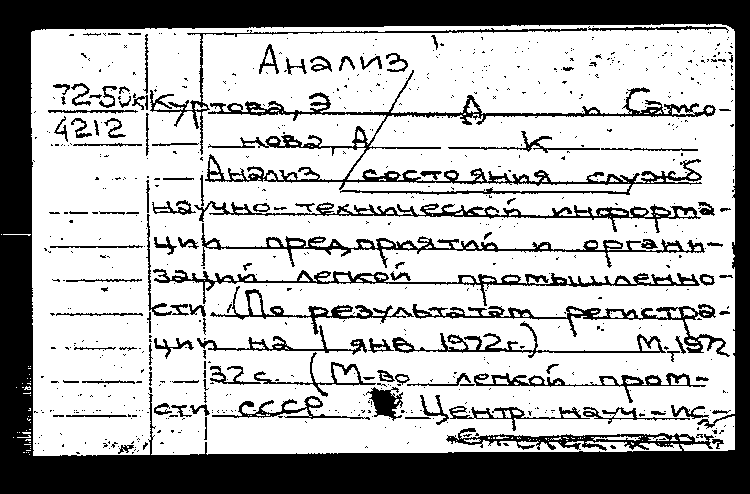 Анализ
72-50к Куртова, Э А и Самсо-
4212 нова, А К
Анализ состояния служб
научно-технической информа-
ции предприятий и органи-
заций легкой промышленно-
сти. (По результатам регистра-
ции на 1 янв. 1972г.) М., 1972
32 с. (М-во легкой пром-
сти СССР Центр. науч.-ис-